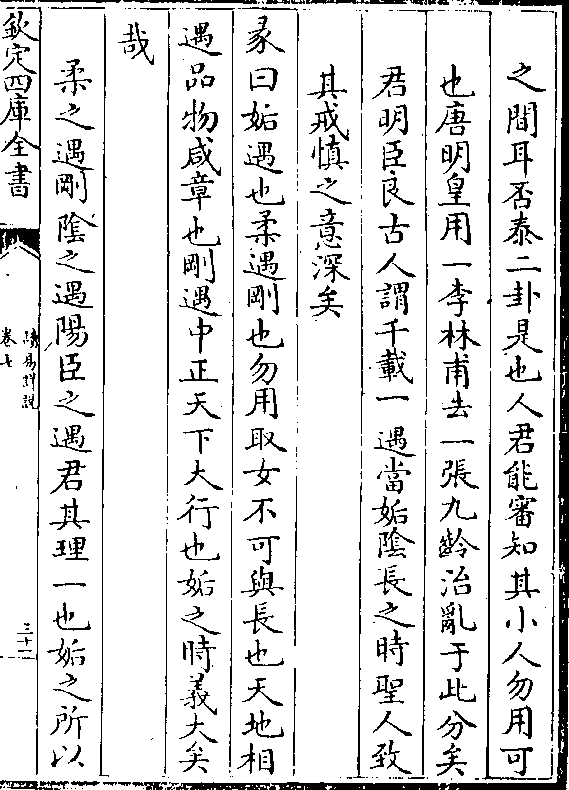 之間耳否泰二卦是也人君能審知其小人勿用可
也唐明皇用一李林甫去一張九齡治亂于此分矣
君明臣良古人謂千載一遇當姤陰長之時聖人致
其戒慎之意深矣
彖曰姤遇也柔遇剛也勿用取女不可與長也天地相
遇品物咸章也剛遇中正天下大行也姤之時義大矣
哉
柔之遇剛陰之遇陽臣之遇君其理一也姤之所以
欽定四庫全書
讀易詳說
卷七
三十一